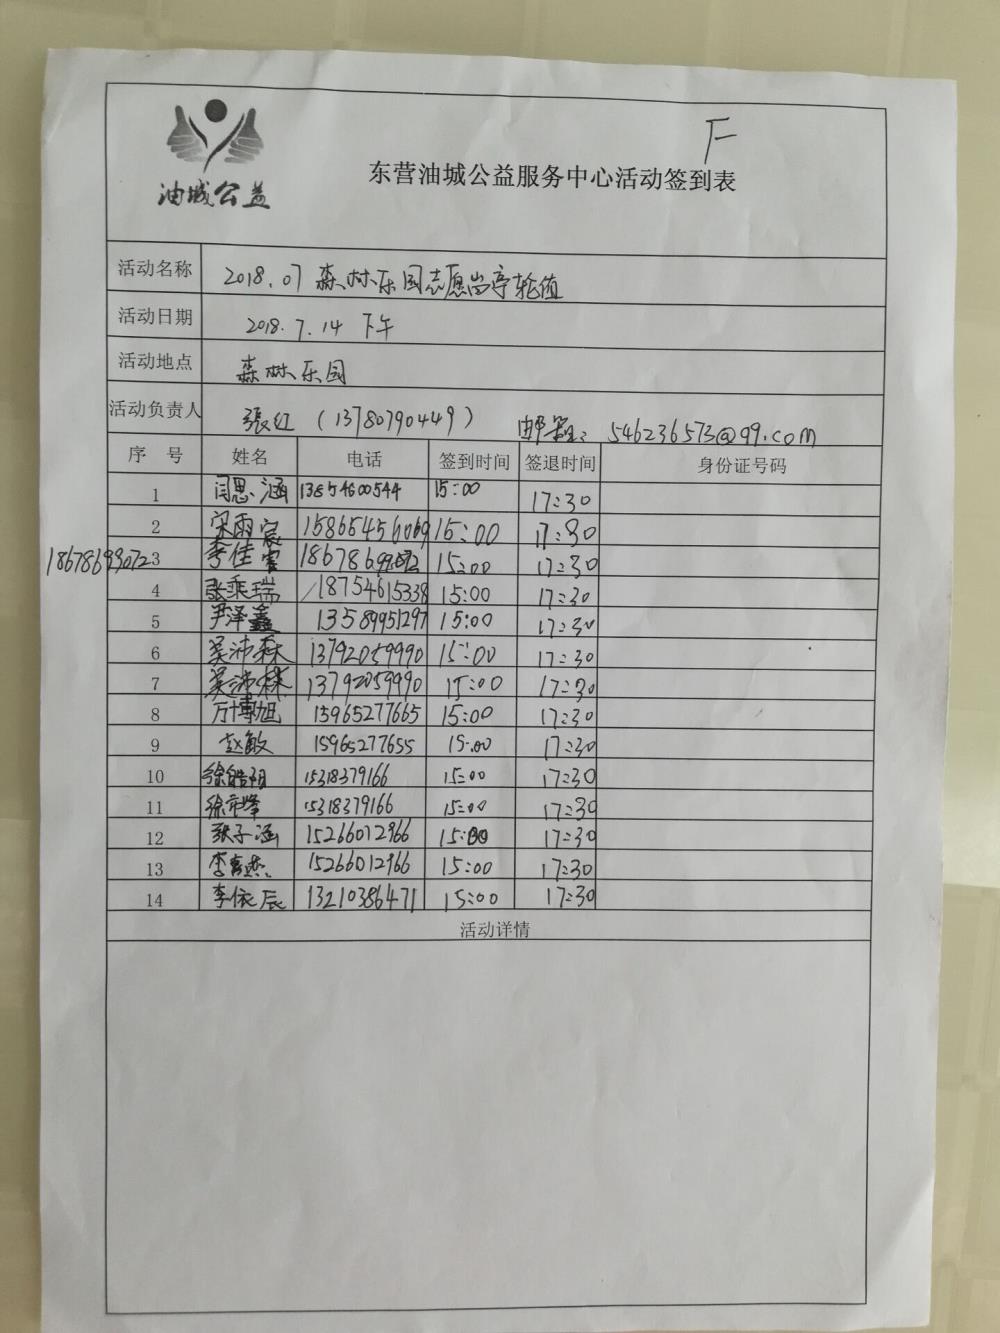 下
油城公益
东营油城公益服务中心活动签到表
活动名称 2018.07 森林乐园志愿岗亭轮值
活动日期 2018.7.14 下午
活动地点 森林乐园
活动负责人 張红（13780790449） 邮箱：546236573@qq.com
序 号 姓名 电话 签到时间 签退时间 身份证号码
1 闫思涵 13854600544 15:00 17:30
2 宋雨宸 15865456069 15:00 17:30
18678699072 3 李佳 15:00 17:30
4 张乘瑞 18754615338 15:00 17:30
5 尹泽鑫 13589951297 15:00 17:30
6 吴沛森 13792059990 15:00 17:30
7 吴沛林 13792059990 15:00 17:30
8 万博旭 15965277665 15:00 17:30
9 赵敏 15965277655 15:00 17:30
10 徐皓阳 15318379166 15:00 17:30
11 徐 峰 15318379166 15:00 17:30
12 张子涵 15266012966 15:00 17:30
13 李 杰 15266012966 15:00 17:30
14 李依辰 13210386471 15:00 17:30
活动详情